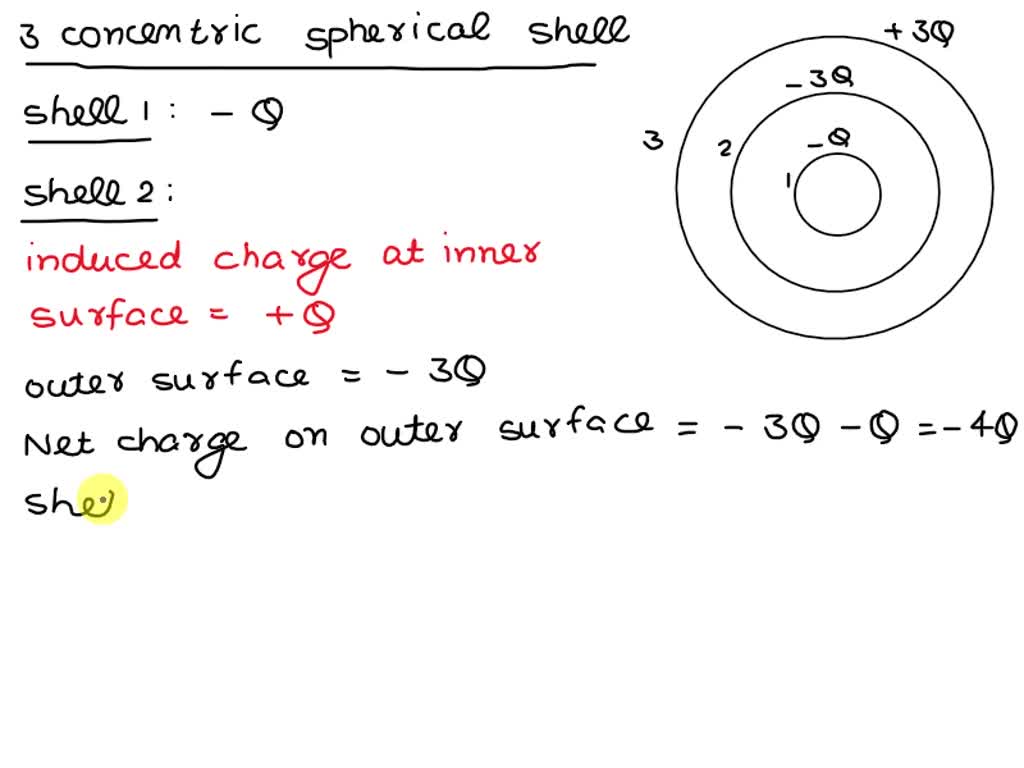 3 concentric spherical shell
shell 1 : - Q
shell 2 :
induced charge at inner
surface = + Q
outer surface = - 3Q
Net charge on outer surface = - 3Q - Q = - 4Q
she
+ 3Q
- 3Q
3
2
- Q
1